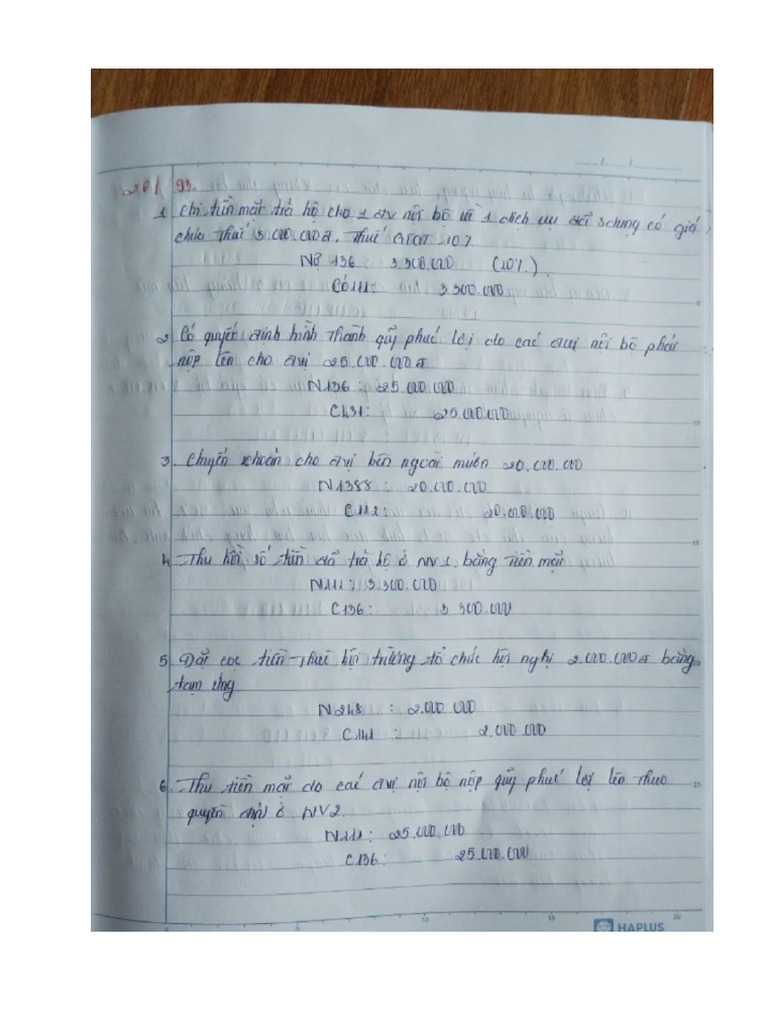 26/ 93.
1 Chi tiền mặt trả hộ cho 1 đv nội bộ về 1 dịch vụ đã sdụng có giá
chưa thuế 3.000.000đ, thuế GTGT 10%
Nợ 136: 3.300.000 (10%).
Có 111: 3.300.000
2 Có quyết định hình thành quỹ phúc lợi do các đvị nội bộ phải
nộp lên cho đvị 25.000.000đ
N136: 25.000.000
C431: 25.000.000
3. Chuyển khoản cho đvị bên ngoài mượn 20.000.000
N1388: 20.000.000
C112: 20.000.000
4. Thu hồi số tiền đã trả hộ ở NV1 bằng tiền mặt
N111: 3.300.000
C136: 3.300.000
5 Đặt cọc tiền thuê hội trường tổ chức hội nghị 2.000.000đ bằng
tạm ứng
N248: 2.000.000
C141 2.000.000
6. Thu tiền mặt do các đvị nội bộ nộp quỹ phúc lợi lên theo
quyết định ở NV2.
N111: 25.000.000
C136: 25.000.000
5 10 15 20
HAPLUS